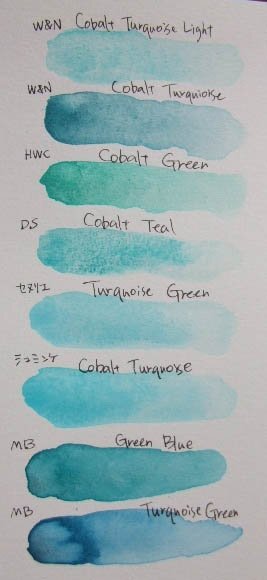 W&N Cobalt Turquoise Light
W&N Cobalt Turquoise
HWC Cobalt Green
DS Cobalt Teal
セヌリエ Turquoise Green
シュミンケ Cobalt Turquoise
MB Green Blue
MB Turquoise Green